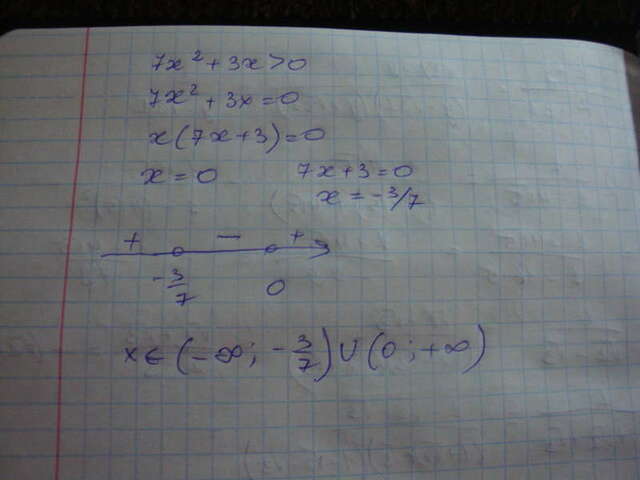 7x² + 3x > 0
7x² + 3x = 0
x(7x+3) = 0
x = 0 7x+3 = 0
x = -3/7
+ - +
-3/7 0
x ∈ (-∞; -3/7) ∪ (0; +∞)